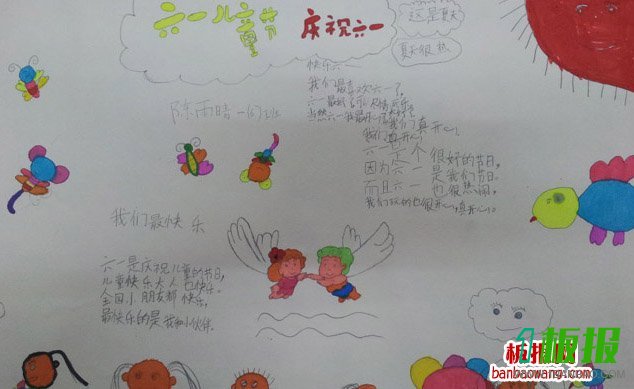 六一儿童节
庆祝六一
这是夏天
夏天很热
快乐六一
我们最喜欢六一了,
陈雨晴 一(7)班
我们真开心。
六一是个很好的节日。
因为六一是我们节日。
而且六一也很热闹。
我们玩的也很开心,真开心。
我们最快乐
六一是庆祝儿童的节日,
儿童快乐大人也快乐。
全国小朋友都快乐,
最快乐的是我和小伙伴。
板报网
banbaowang.com
板报